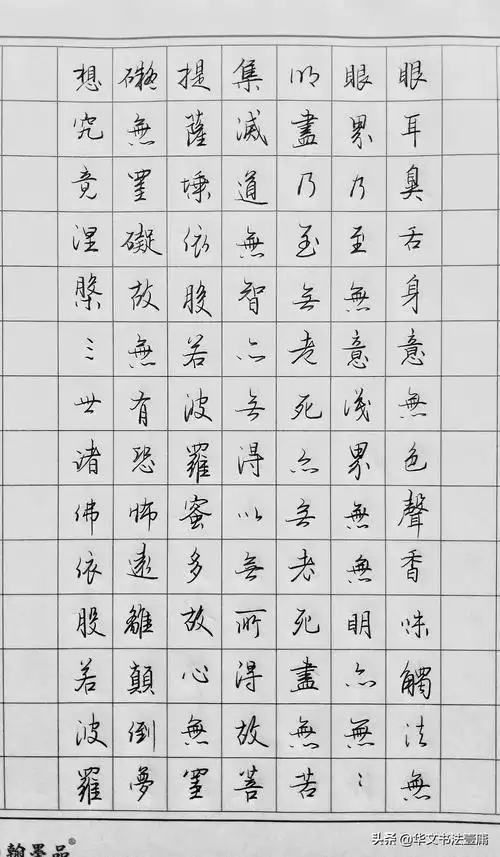 眼耳鼻舌身意無色聲香味觸法無
眼界乃至無意識界無無明亦無〻
明盡乃至無老死亦無老死盡無苦
集滅道無智亦無得以無所得故菩
提薩埵依般若波羅蜜多故心無罣
礙無罣礙故無有恐怖遠離顛倒夢
想究竟涅槃三世諸佛依般若波羅
翰墨品®
头条 @华文书法壹牖